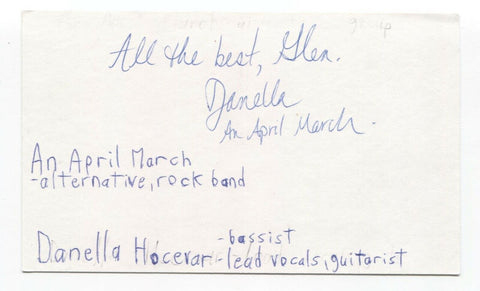 group
All the best, Glen.
Danella
An April March.
An April March
-alternative, rock band
-bassist
Danella Hocevar -lead vocals, guitarist